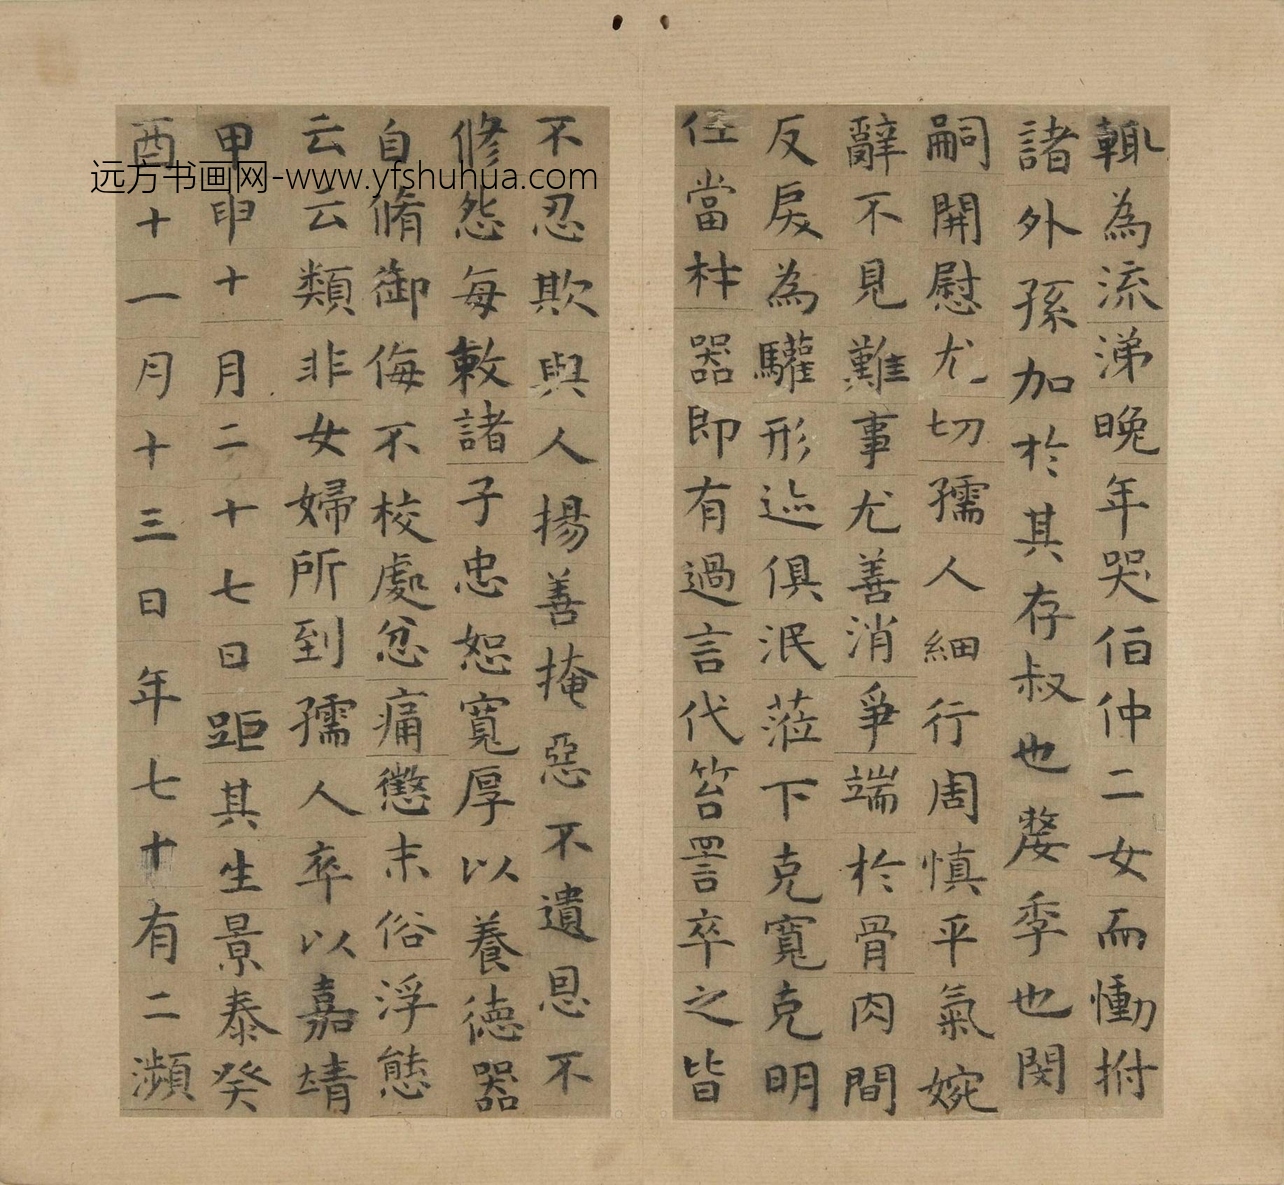 輒為流涕晚年哭伯仲二女而慟拊
諸外孫加於其存叔也嫠季也閔
嗣開慰尤切孺人細行周慎平氣婉
辭不見難事尤善消爭端於骨肉間
反戾為驩形迹俱泯蒞下克寬克明
任當材器即有過言代笞詈卒之皆
不忍欺與人揚善掩惡不遺恩不
修怨每敕諸子忠恕寬厚以養德器
自脩御侮不校處忿痛懲末俗浮態
云云類非女婦所到孺人卒以嘉靖
甲申十月二十七日距其生景泰癸
酉十一月十三日年七十有二瀕
远方书画网-www.yfshuhua.com